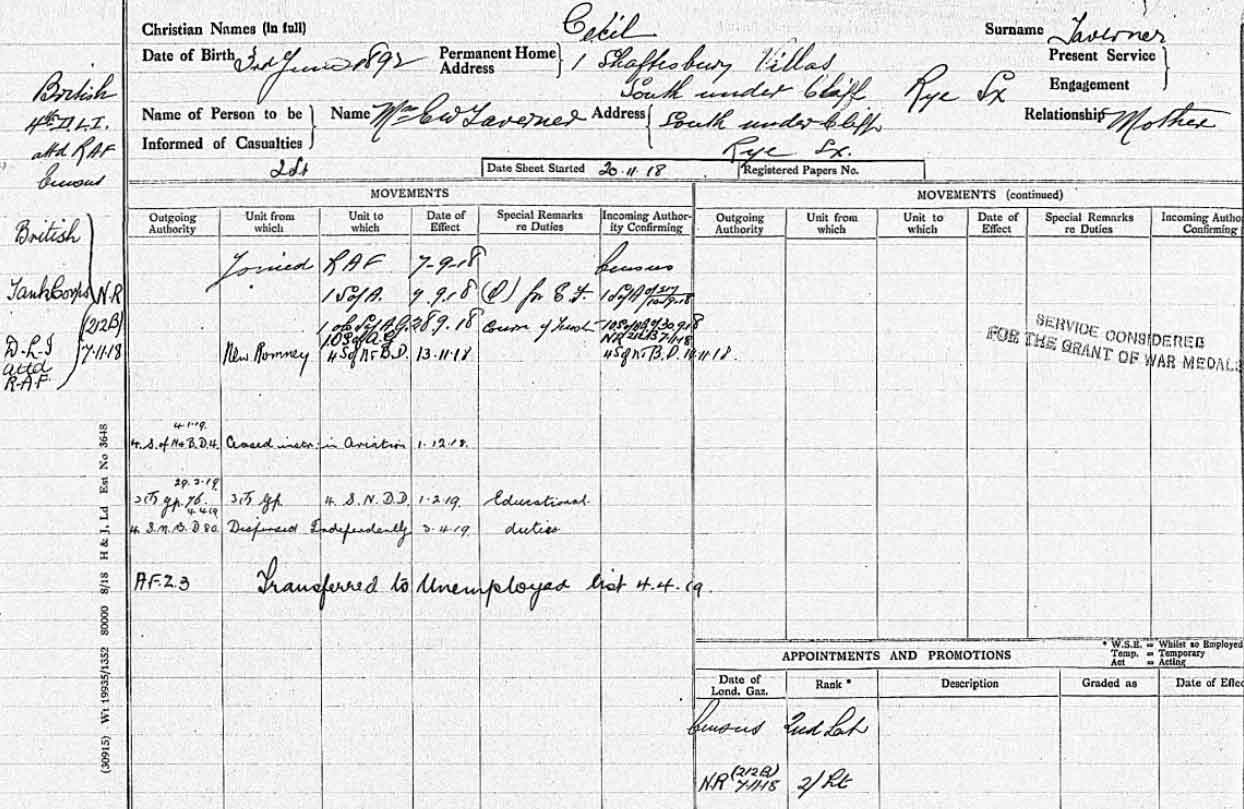 Christian Names (in full) Cecil Surname Taverner
Date of Birth 3rd June 1892 Permanent Home Address } 1 Shaftesbury Villas Present Service
South under Cliff Rye Sx Engagement
Name of Person to be Informed of Casualties } Name Mrs Taverner Address { South under Cliff Relationship Mother
Rye Sx.
2Lt Date Sheet Started 20.11.18 Registered Papers No.
British
4th D.L.I.
attd RAF
Census
British
Tank Corps N.R
(212B)
D.L.I 7.11.18
attd
R.A.F.
MOVEMENTS MOVEMENTS (continued)
Outgoing Authority Unit from which Unit to which Date of Effect Special Remarks re Duties Incoming Author-ity Confirming Outgoing Authority Unit from which Unit to which Date of Effect Special Remarks re Duties Incoming Autho Confirming
Joined RAF 7-9-18 Census
1 S of A. 7.9.18 for 1 S of A
28.9.18 Course of
NR 212B 7-11-18
New Romney 13.11.18 14.11.18.
SERVICE CONSIDERED
FOR THE GRANT OF WAR MEDAL
4.1.19.
Ceased instr: in Aviation 1.12.18.
4.4.19 1.2.19. Educational
Dispersed Independently 3.4.19. duties
AF.23 Transferred to Unemployed list 4.4.19.
* W.S.E. = Whilst so Employed
Temp. = Temporary
Act = Acting
APPOINTMENTS AND PROMOTIONS
Date of Lond. Gaz. Rank * Description Graded as Date of Effec
Census 2nd Lt
NR (212B) 7-11-18 2/Lt
(30915) Wt 19935/1352 80000 8/18 H & J, Ld Est No 3648